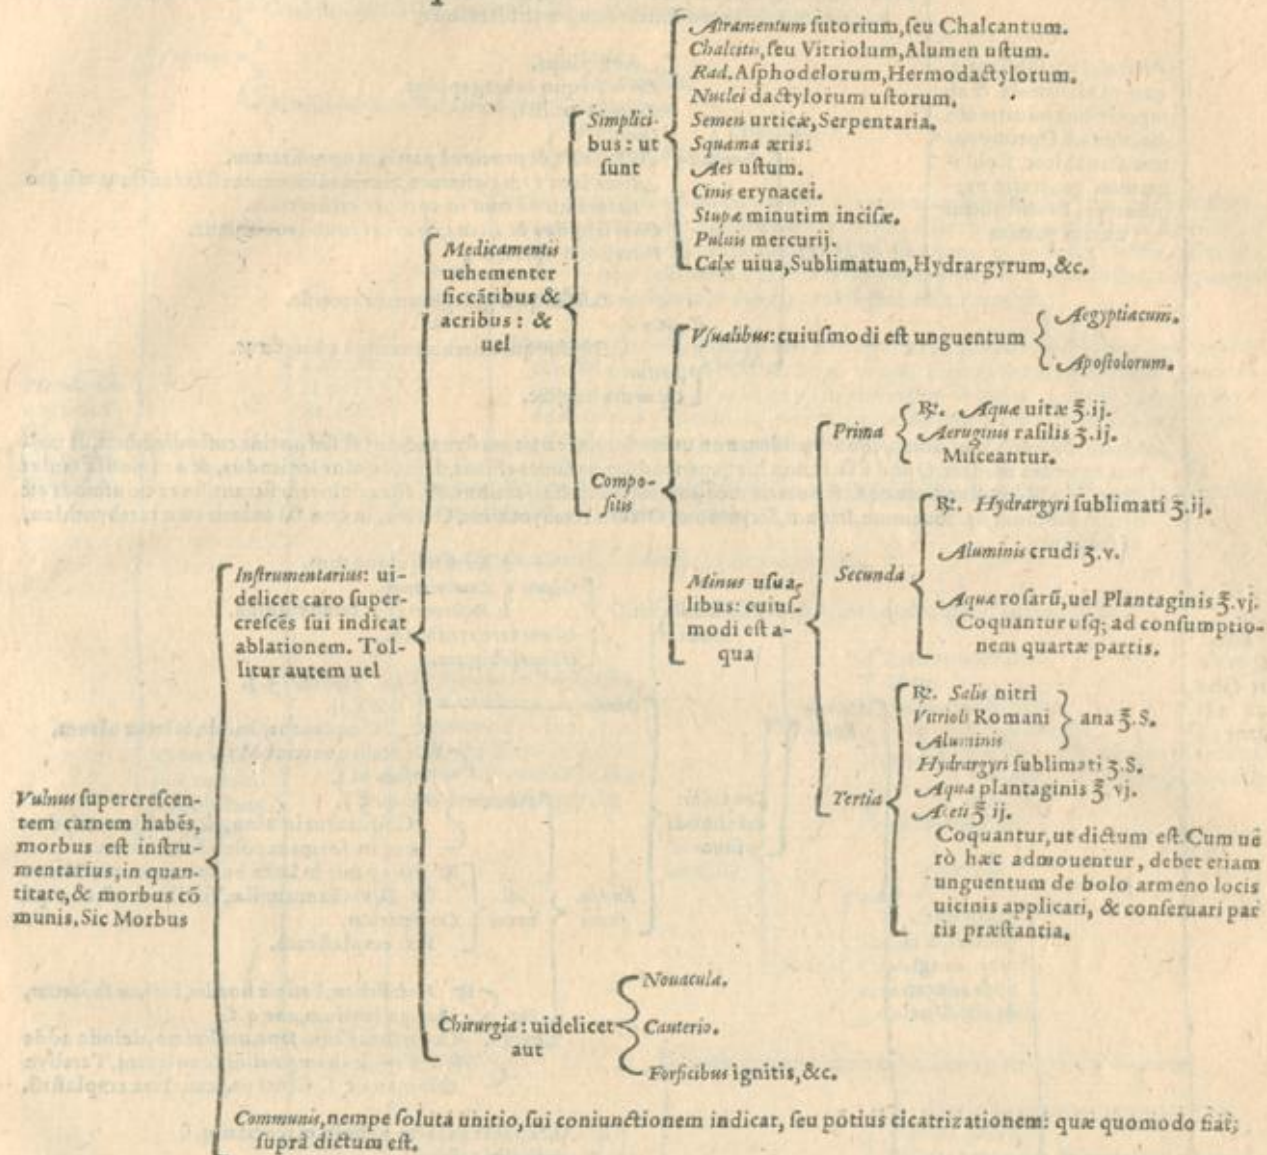 Vulnus supercrescen-
tem carnem habēs,
morbus est instru-
mentarius, in quan-
titate, & morbus cō
munis. Sic Morbus
Instrumentarius: ui-
delicet caro super-
crescēs sui indicat
ablationem. Tol-
litur autem uel
Medicamentis
uehementer
siccātibus &
acribus: &
uel
Simplici-
bus: ut
sunt
Atramentum sutorium, seu Chalcantum.
Chalcitis, seu Vitriolum, Alumen ustum.
Rad. Asphodelorum, Hermodactylorum.
Nuclei dactylorum ustorum.
Semen urticæ, Serpentaria.
Squama æris.
Aes ustum.
Cinis erynacei.
Stupæ minutim incisæ.
Puluis mercurij.
Calx uiua, Sublimatum, Hydrargyrum, &c.
Compo-
sitis
Vsualibus: cuiusmodi est unguentum
Aegyptiacum.
Apostolorum.
Minus usua-
libus: cuius-
modi est a-
qua
Prima
℞. Aquæ uitæ ℥.ij.
Aeruginis rasilis ʒ.ij.
Misceantur.
Secunda
℞. Hydrargyri sublimati ʒ.ij.
Aluminis crudi ʒ.v.
Aquæ rosarū, uel Plantaginis ℥.vj.
Coquantur usq; ad consumptio-
nem quartæ partis.
Tertia
℞. Salis nitri
Vitrioli Romani
Aluminis
ana ℥.S.
Hydrargyri sublimati ʒ.S.
Aquæ plantaginis ℥ vj.
Aceti ℥ ij.
Coquantur, ut dictum est. Cum uē
rò hæc admouentur, debet etiam
unguentum de bolo armeno locis
uicinis applicari, & conseruari par
tis præstantia.
Chirurgia: uidelicet
aut
Nouacula.
Cauterio.
Forficibus ignitis, &c.
Communis, nempe soluta unitio, sui coniunctionem indicat, seu potius cicatrizationem: quæ quomodo fiat,
suprà dictum est.